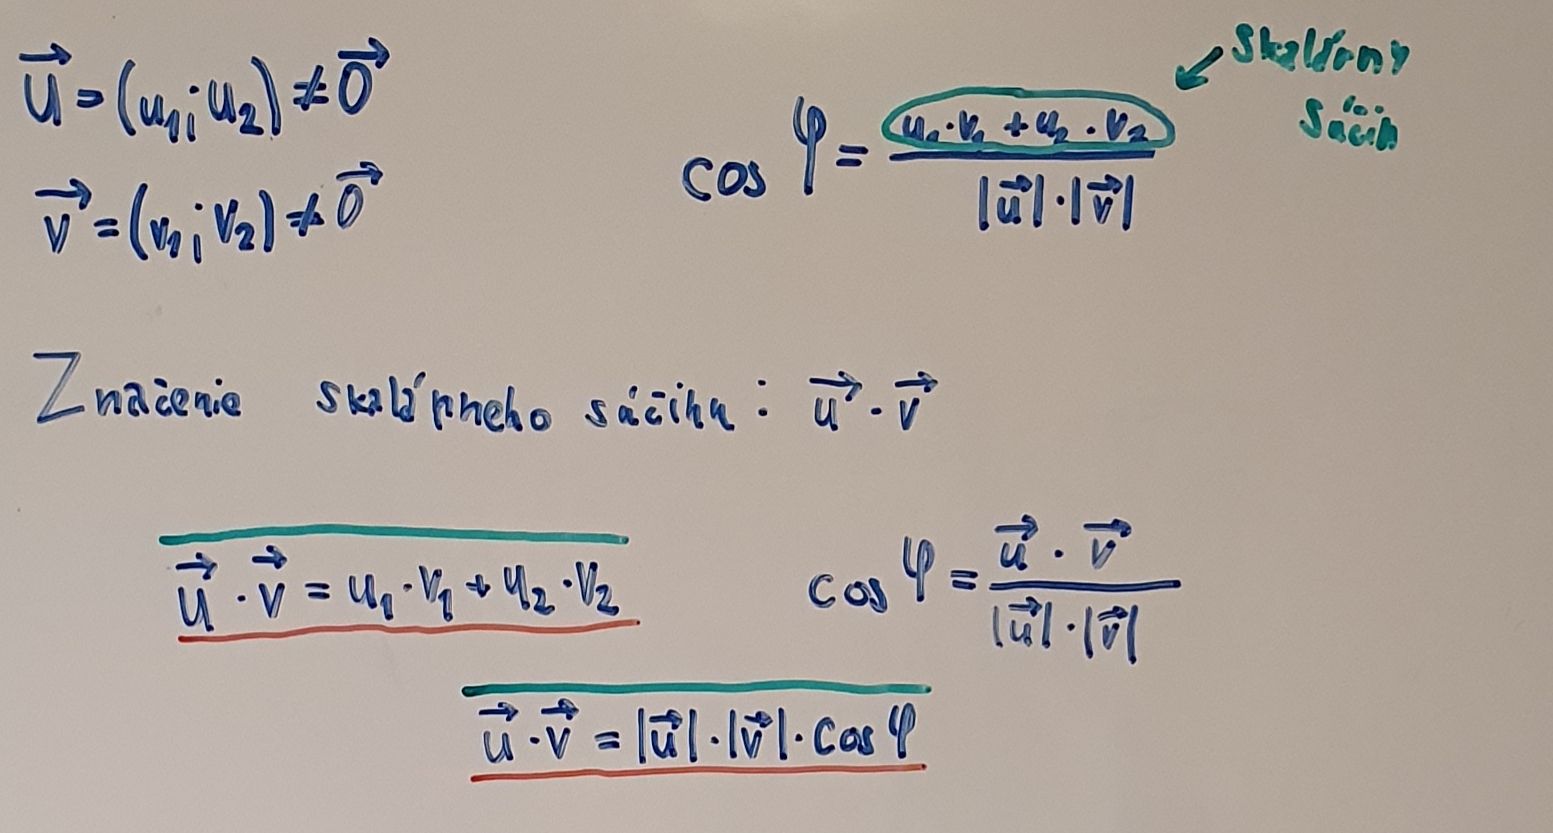 u⃗ = (u₁; u₂) ≠ 0⃗
v⃗ = (v₁; v₂) ≠ 0⃗
cos φ = (u₁·v₁ + u₂·v₂) / (|u⃗|·|v⃗|)
skalárny
súčin
Značenie skalárneho súčinu: u⃗ · v⃗
u⃗ · v⃗ = u₁·v₁ + u₂·v₂
cos φ = (u⃗ · v⃗) / (|u⃗|·|v⃗|)
u⃗ · v⃗ = |u⃗|·|v⃗|·cos φ